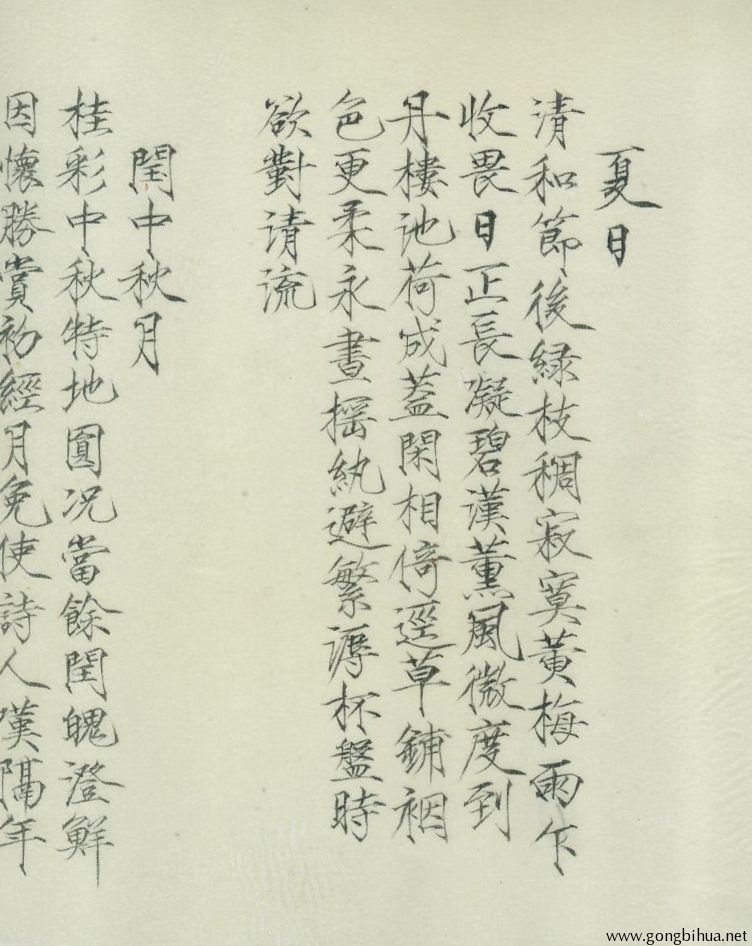 夏日
清和節後緑枝稠寂寞黄梅雨乍
收畏日正長凝碧漢薰風微度到
丹樓池荷成蓋閑相倚逕草鋪裀
色更柔永晝摇紈避繁溽杯盤時
欲對清流
閏中秋月
桂彩中秋特地圓况當餘閏魄澄鮮
因懷勝賞初經月免使詩人嘆隔年
www.gongbihua.net